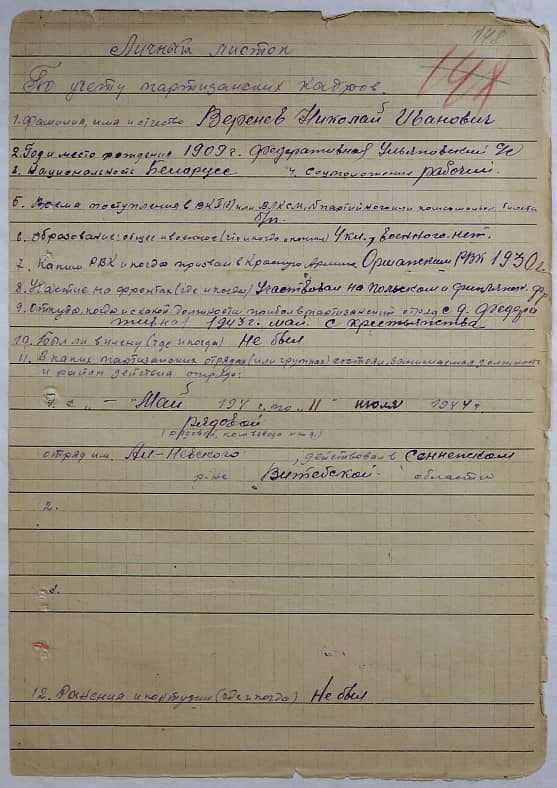 148
148
Личный листок
По учету партизанских кадров.
1. Фамилия, имя и отчество Веренев Николай Иванович
2. Год и место рождения 1909 г. Ульяновский
3. Национальность Белорусс 4. Соцположение рабочий.
5. Время поступления в ВКП(б) или ВЛКСМ, № партийного или комсомольск. билета
б/п.
6. Образование: общее и военное (где и когда окончил) 4 кл., военного нет.
7. Каким РВК и когда призван в Красную Армию Оршанским РВК 1930 г.
8. Участие на фронтах (где и когда) Участвовал на Польском и финлянск. фр
9. Откуда, когда и с какой должности прибыл в партизанский отряд с д.
1943 г. май. с крестьянства.
10. Был ли в плену (где и когда) Не был
11. В каких партизанских отрядах (или группах) состоял, занимаемая должность
и район действия отряда:
1. с „ - " Май 194 г. по „11" июля 1944 г.
рядовой
(рядовой, ком. взвода и т.д.)
отряд им. Ал-Невского, действовал в Сенненском
р-не Витебской области
2.
3.
12. Ранения и контузии (где и когда) Не был